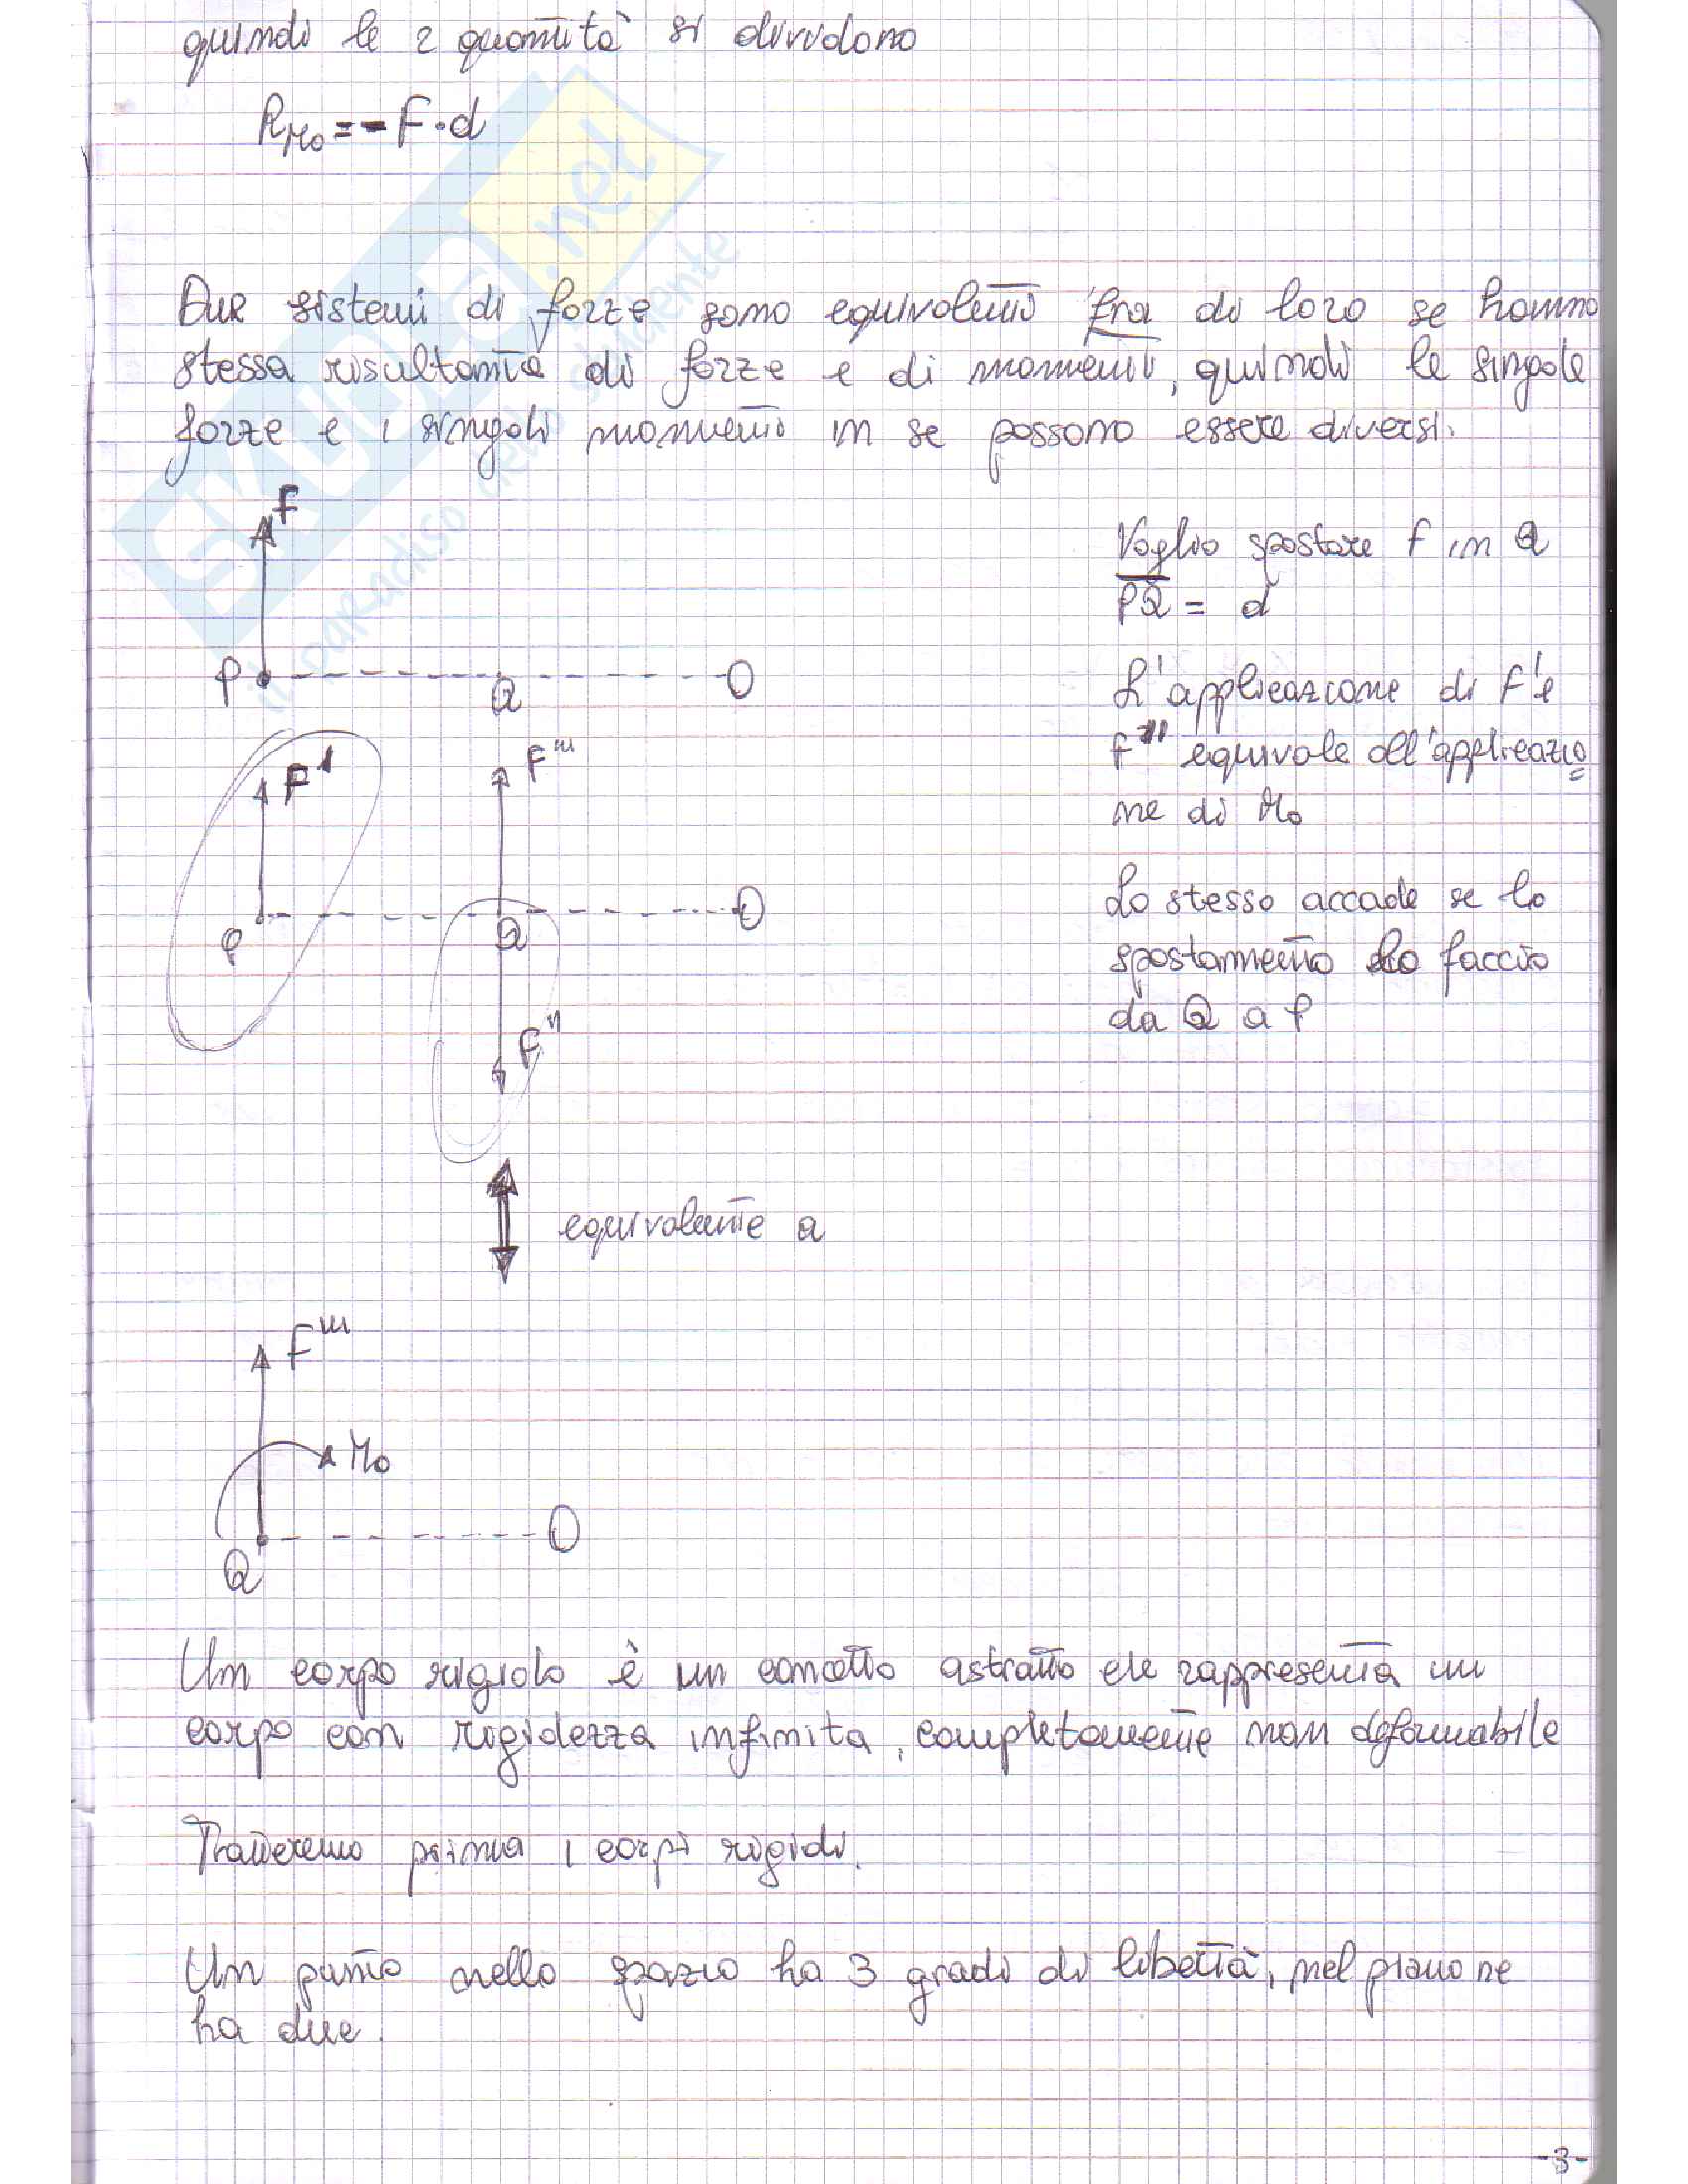 quindi le 2 quantità si dividono
R_Mo = - F · d
Due sistemi di forze sono equivalenti fra di loro se hanno
stessa risultante di forze e di momenti, quindi le singole
forze e i singoli momenti in se possono essere diversi.
F
P
Q
O
Voglio spostare F in Q
PQ = d
L'applicazione di F' e
F'' equivale all'applicazio
ne di Mo
Lo stesso accade se lo
spostamento lo faccio
da Q a P
F'
F'''
P
Q
O
F''
equivalente a
F'''
Mo
Q
O
Un corpo rigido è un concetto astratto che rappresenta un
corpo con rigidezza infinita, completamente non deformabile
Tratteremo prima i corpi rigidi.
Un punto nello spazio ha 3 gradi di libertà, nel piano ne
ha due.
-3-
SKUOLA.net
il paradiso dello studente